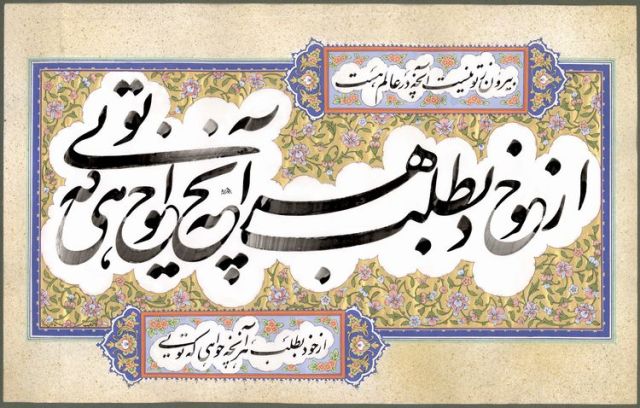 بیرون ز تو نیست آنچه در عالم هست
از خود بطلب هر آنچه خواهی که تویی
از خود بطلب هر آنچه خواهی که تویی